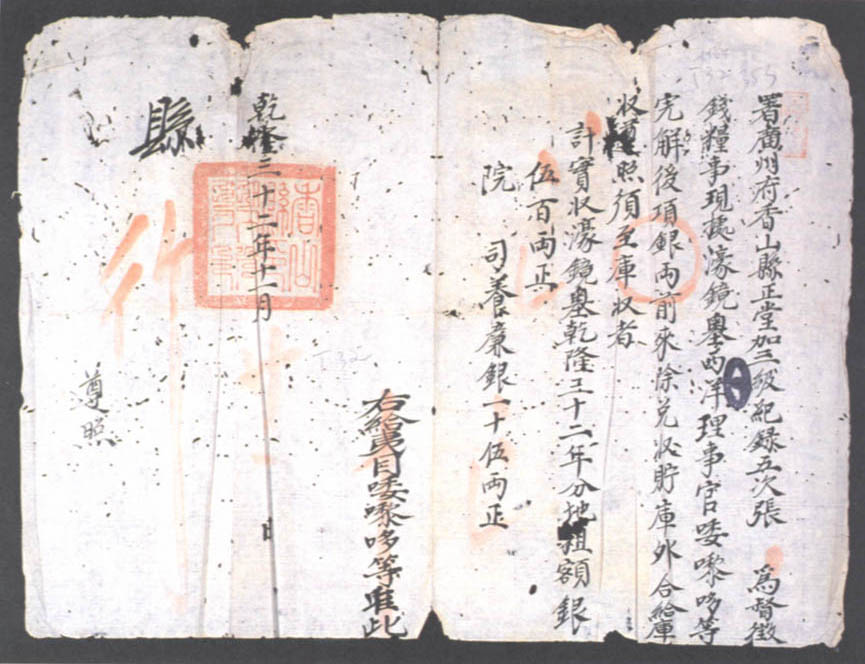 署廣州府香山縣正堂加三級紀錄五次張 爲督徵
錢糧事現據濠鏡墺西洋理事官唩嚟哆等
完解後項銀兩前來除兌收貯庫外合給庫
收遵照須至庫收者
計實收濠鏡墺乾隆三十二年分地租額銀
伍百兩正
院 司養廉銀一十伍兩正
右給夷目唩嚟哆等准此
乾隆三十二年十一月 日
縣
行
遵照
T32